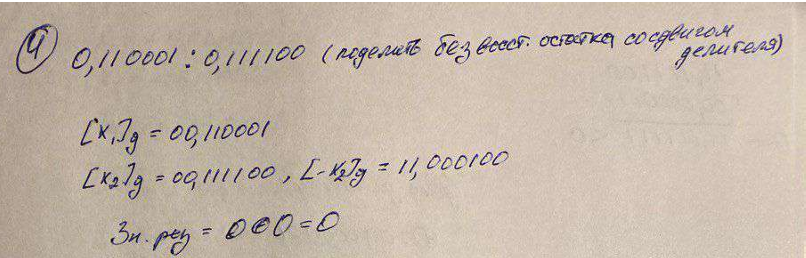 4
0,110001 : 0,111100 (поделить без восст. остатка со сдвигом
делителя)
[x₁]g = 00,110001
[x₂]g = 00,111100, [-x₂]g = 11,000100
Зн. рез = 0⊕0 = 0